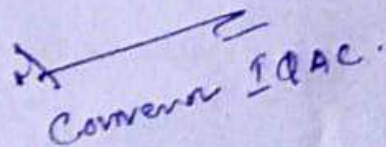 Convenor IQAC.